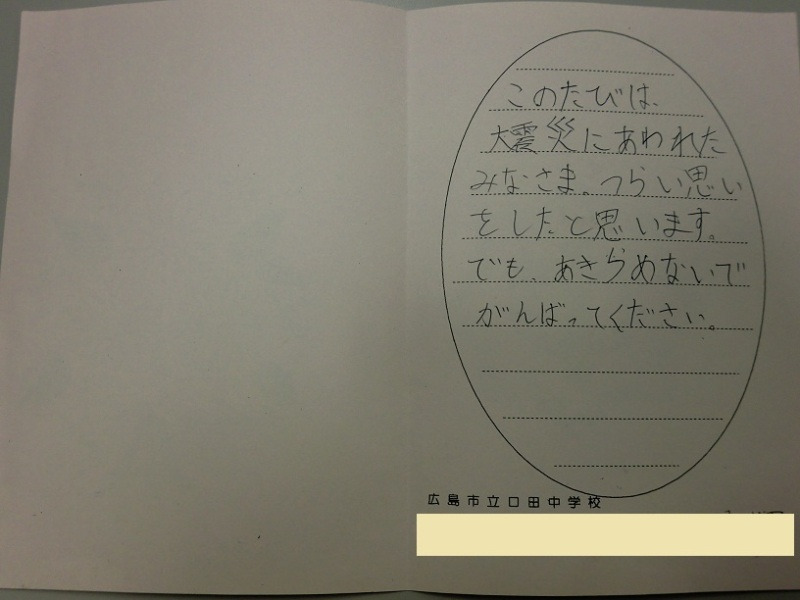 このたびは、
大震災にあわれた
みなさま。つらい思い
をしたと思います。
でも、あきらめないで
がんばってください。
広島市立口田中学校